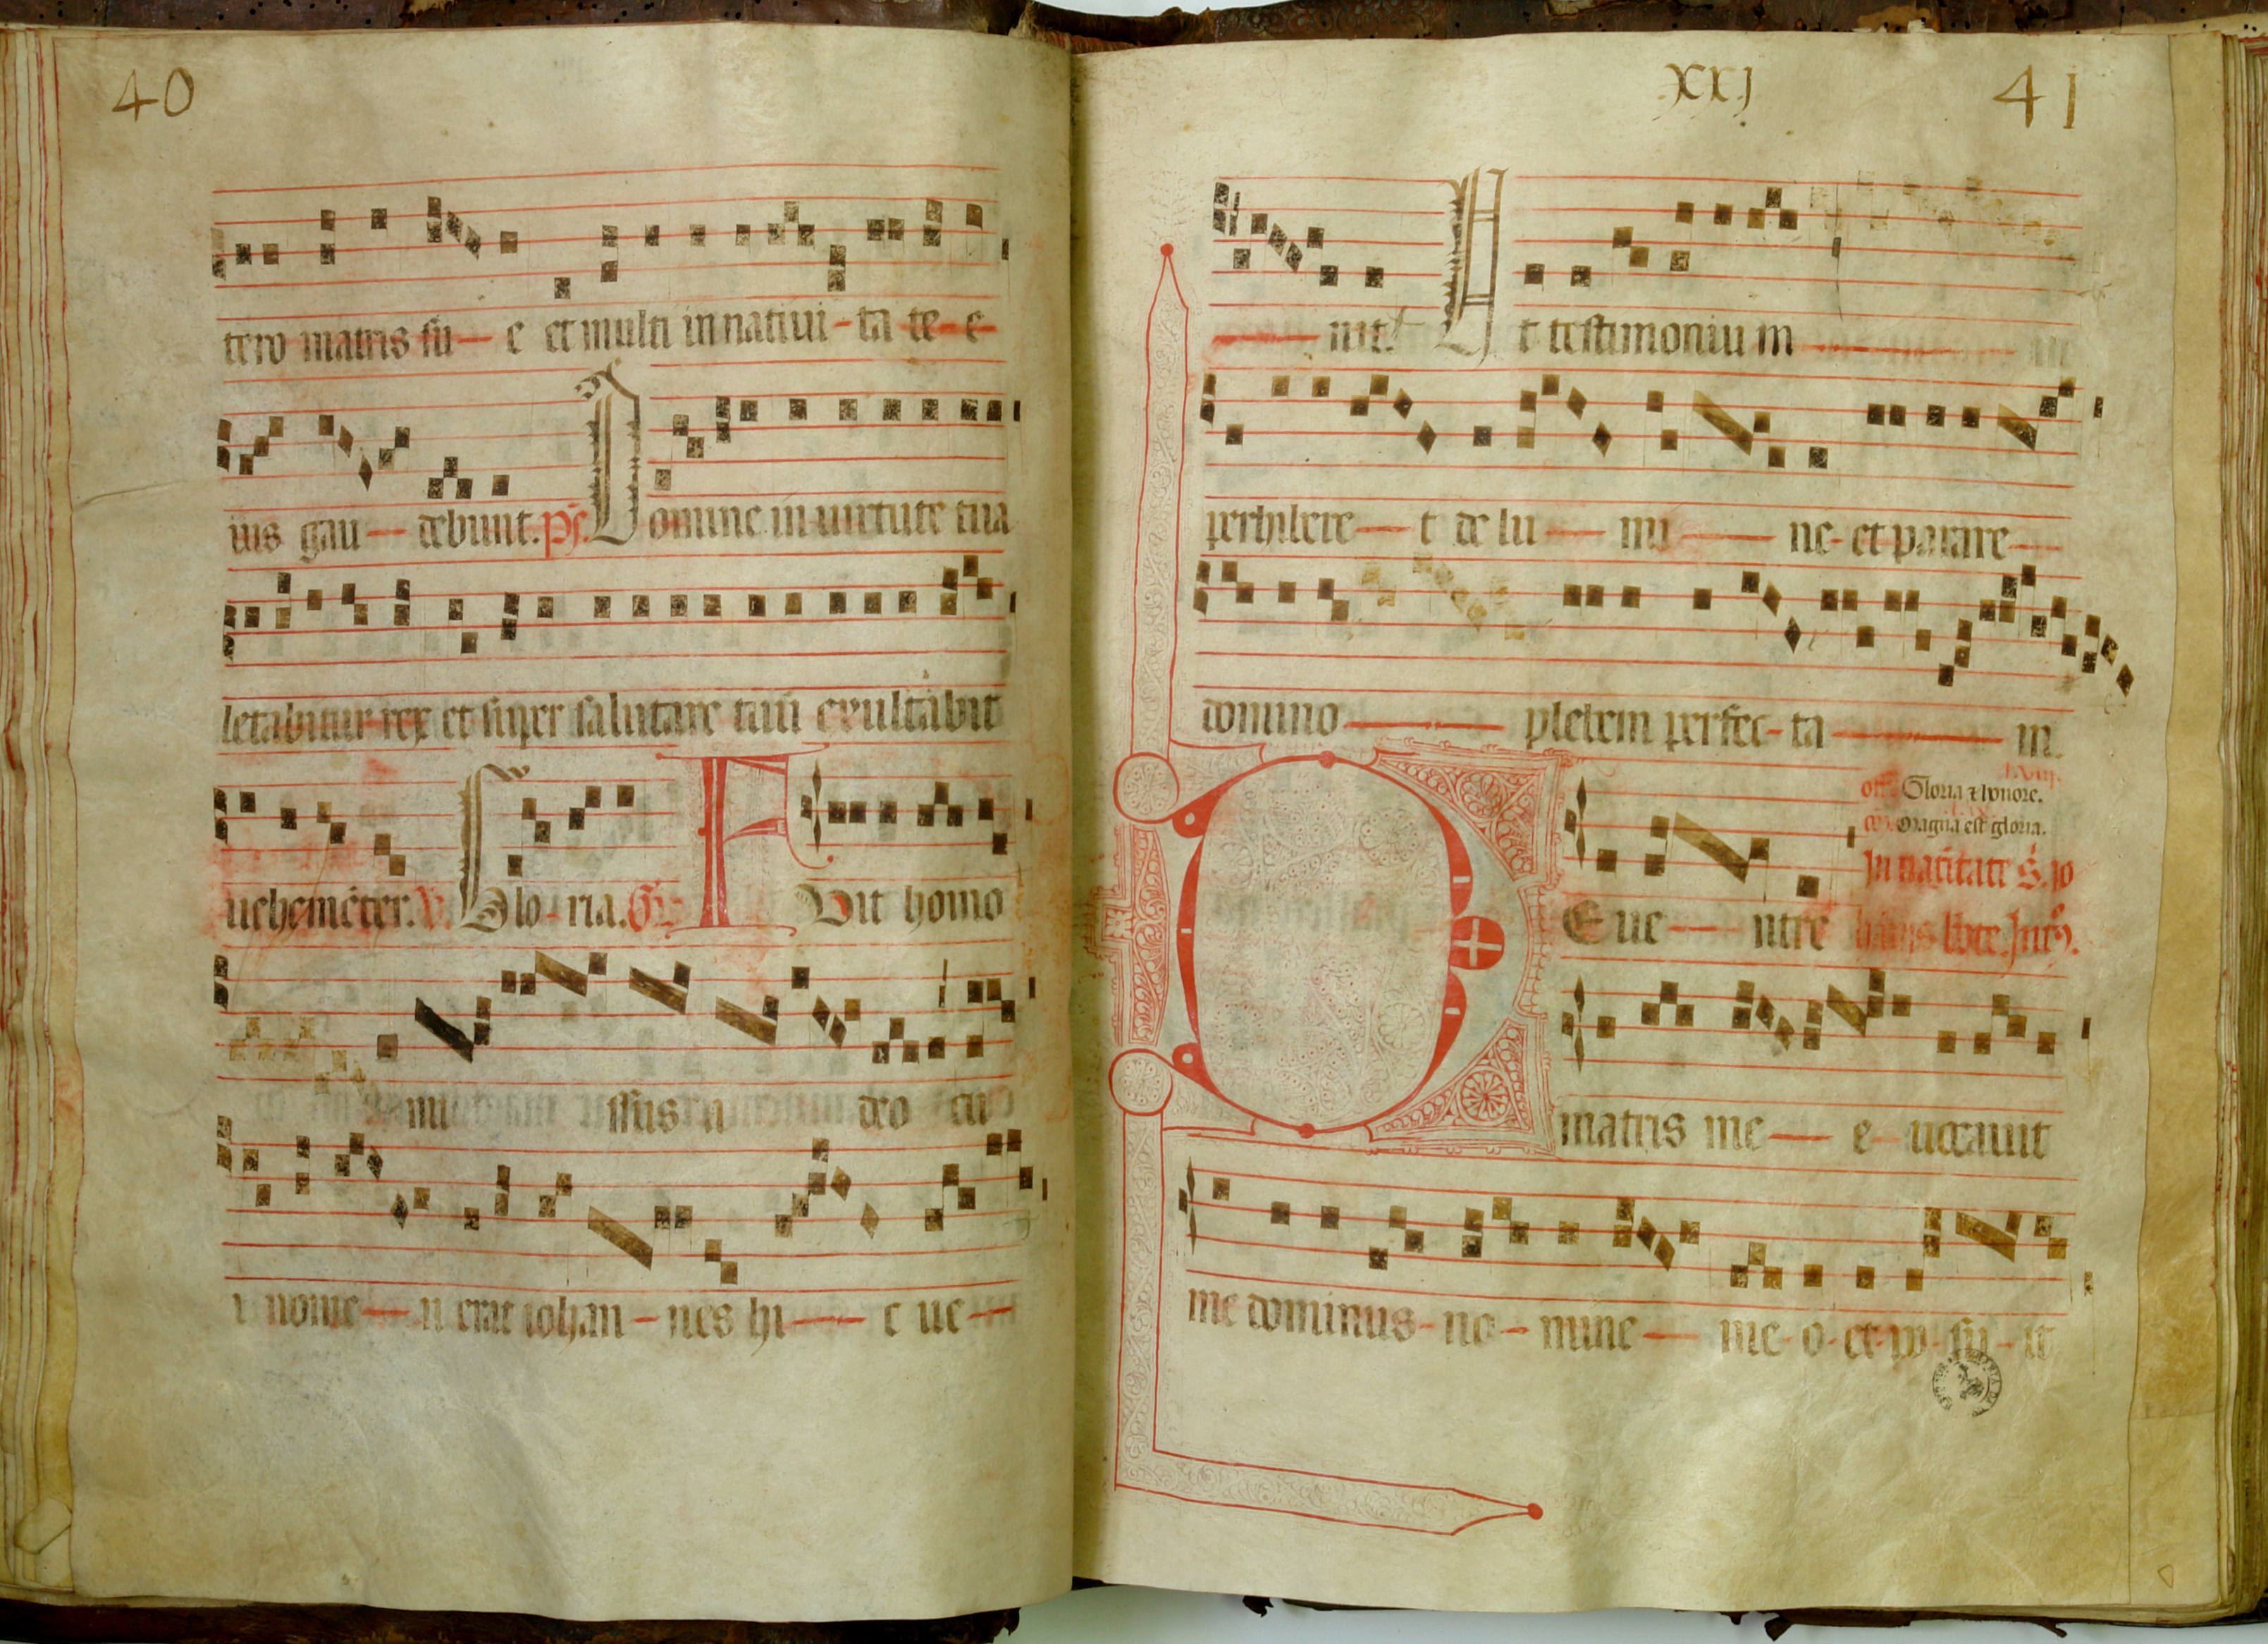 40
tero matris su - e et multi in nativi - ta te - e
ius gau - debunt. ps. Domine in uirtute tua
letabitur rex et super salutare tuū exultabit
uehemēter. V. Glo - ria. G. F Vit homo
mi ssus a deo cu
i nome - n erat iohan - nes hi - c ue -
XXJ 41
- nit. Ut testimoniu m
perhibere - t de lu - mi - ne - et parare -
domino - plebem perfec - ta - m.
Gloria ⁊ honore.
Magna est gloria.
In natiītate S. io
D E ue - ntre
matris me - e uocauit
me dominus - no - mine - me - o - et - po - su - it